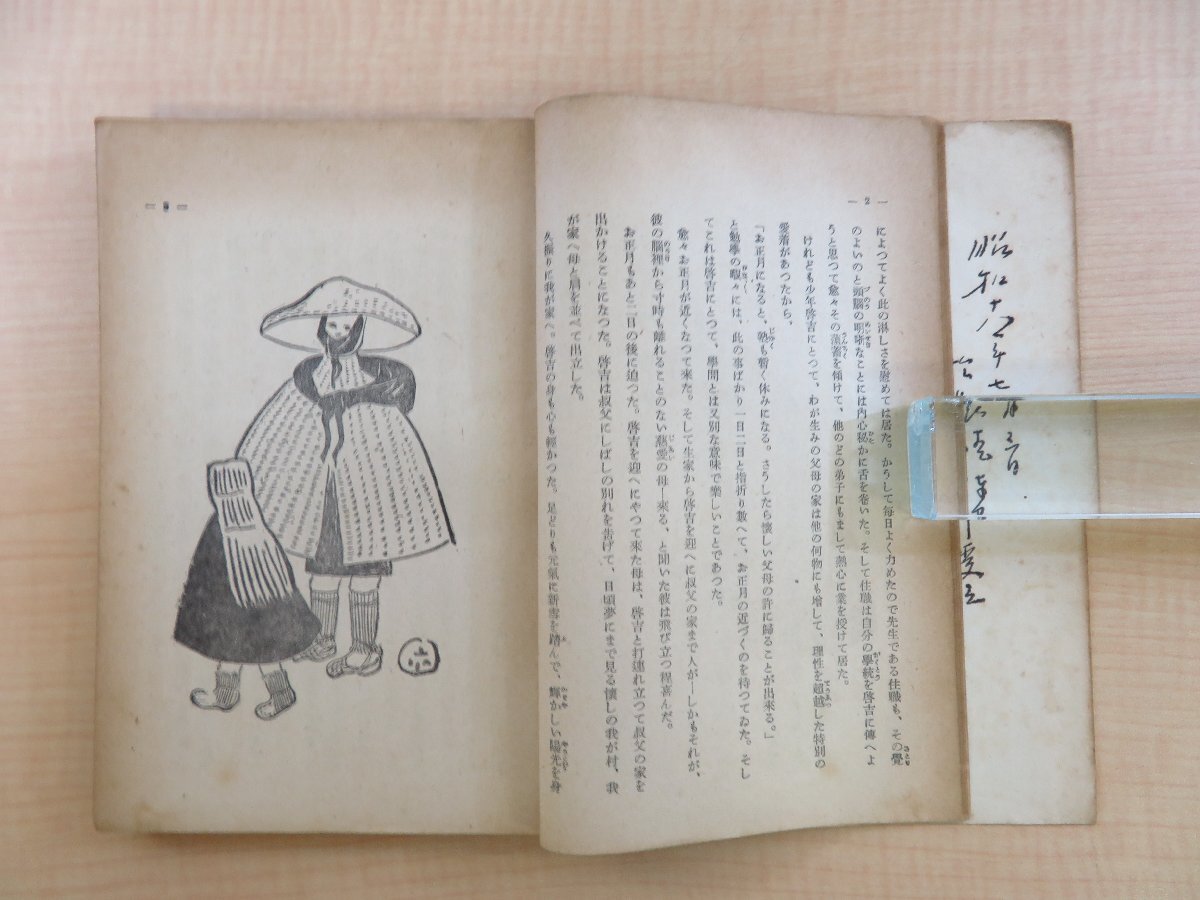 昭和十八年七月
— 2 —
によつてよく此の淋しさを慰めては居た。かうして毎日よく力めたので先生である住職も、その覺
のよいのと頭腦の明晰なことには内心秘かに舌を卷いた。そして住職は自分の學統を啓吉に傳へよ
うと思つて愈々その薀蓄を傾けて、他のどの弟子にもまして熱心に業を授けて居た。
けれども少年啓吉にとつて、わが生みの父母の家は他の何物にも增して、理性を超越した特別の
愛着があつたから、
「お正月になると、塾も暫く休みになる。さうしたら懷しい父母の許に歸ることが出來る。」
と勉學の暇々には、此の事ばかり一日二日と指折り數へて、お正月の近づくのを待つてゐた。そし
てこれは啓吉にとつて、學問とは又別な意味で樂しいことであつた。
愈々お正月が近くなつて來た。そして生家から啓吉を迎へに叔父の家まで人が—しかもそれが、
彼の腦裡から寸時も離れることのない慈愛の母—來る、と聞いた彼は飛び立つ程喜んだ。
お正月もあと二日の後に迫つた。啓吉を迎へにやつて來た母は、啓吉と打連れ立つて叔父の家を
出かけることになつた。啓吉は叔父にしばしの別れを告げて、日頃夢にまで見る懷しの我が村、我
が家へ母と肩を並べて出立した。
久振りに我が家へ。啓吉の身も心も輕かつた。足どりも元氣に新雪を踏んで、輝かしい陽光を身